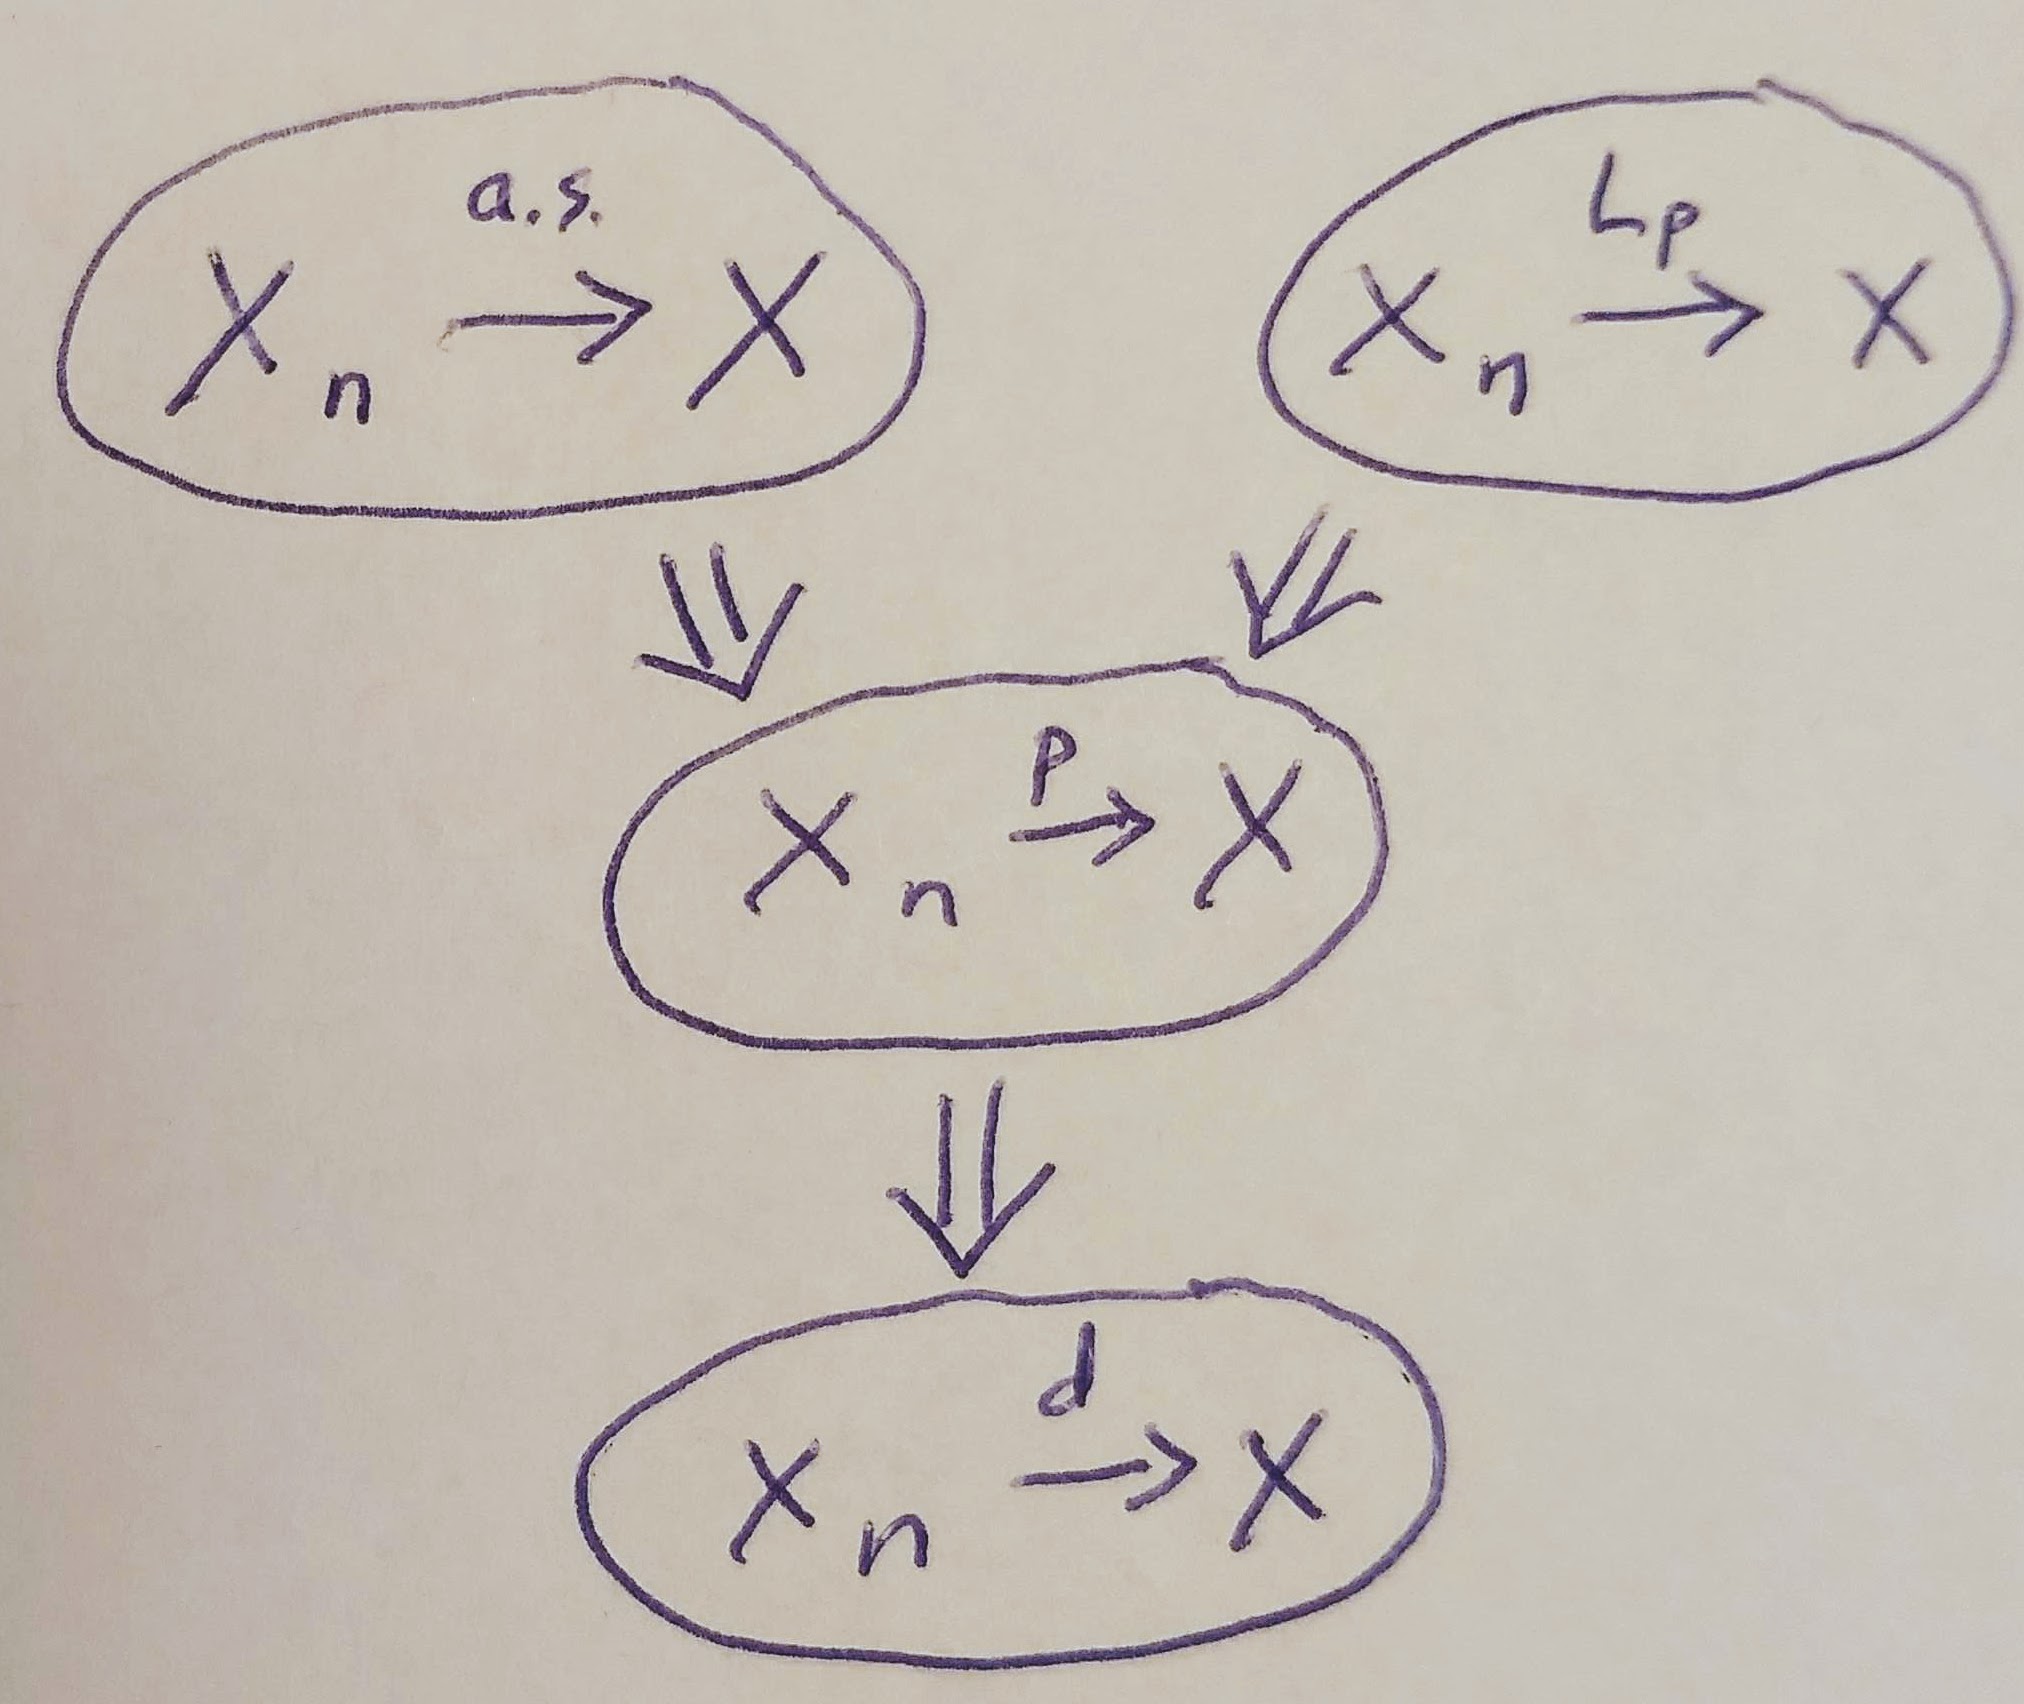 X_n \xrightarrow{a.s.} X
X_n \xrightarrow{L_p} X
X_n \xrightarrow{p} X
X_n \xrightarrow{d} X